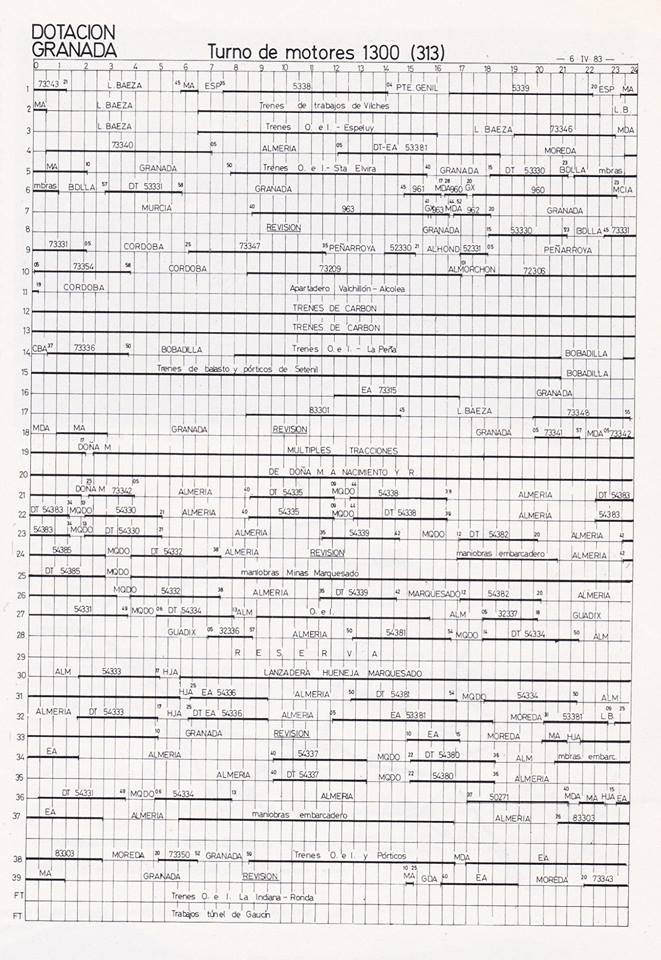 DOTACION
GRANADA
Turno de motores 1300 (313)
— 6 · IV · 83 —
0 1 2 3 4 5 6 7 8 9 10 11 12 13 14 15 16 17 18 19 20 21 22 23 24
1 73343 21 L. BAEZA 45 MA ESP 5338 04 PTE. GENIL 5339 20 ESP MA
2 MA L. BAEZA Trenes de trabajos de Vilches L. B.
3 L. BAEZA Trenes O. e I. - Espeluy L. BAEZA 73346 MDA
4 73340 05 ALMERIA 05 DT-EA 53381 MOREDA
5 MA 10 GRANADA 50 Trenes O. e I. - Sta Elvira 40 GRANADA 15 DT 53330 23 BDLLA mbras
6 mbras BDLLA 57 DT 53331 58 GRANADA 45 961 17 MDA 28 960 20 GX 960 23 MCIA
7 MURCIA 40 963 41 GX 963 44 MDA 52 962 20 GRANADA
8 REVISION GRANADA 15 53330 23 BDLLA 45 73331
9 73331 05 CORDOBA 15 73347 35 PEÑARROYA 52330 21 ALHOND 52331 05 PEÑARROYA
10 05 73354 58 CORDOBA 73209 01 ALMORCHON 72306
11 19 CORDOBA Apartadero Valchillón - Alcolea
12 TRENES DE CARBON
13 TRENES DE CARBON
14 CBA 37 73336 50 BOBADILLA Trenes O. e I. - La Peña BOBADILLA
15 Trenes de balasto y pórticos de Setenil BOBADILLA
16 EA 73315 GRANADA
17 83301 45 L. BAEZA 73348 55
18 MDA MA GRANADA REVISION GRANADA 05 73341 57 MDA 05 73342
19 17 DOÑA M MULTIPLES TRACCIONES
20 DE DOÑA M A NACIMIENTO Y R.
21 25 DOÑA M 73342 05 ALMERIA 40 DT 54335 09 MQDO 44 54338 39 ALMERIA DT 54383
22 DT 54383 34 MQDO 13 54330 21 ALMERIA 40 54335 09 MQDO 44 DT 54338 39 ALMERIA 54383
23 54383 34 MQDO 13 DT 54330 21 ALMERIA 35 54339 42 MQDO 12 DT 54382 20 ALMERIA 42
24 54385 MQDO DT 54332 38 ALMERIA REVISION maniobras embarcadero ALMERIA 42
25 DT 54385 MQDO maniobras Minas Marquesado
26 MQDO 54332 38 ALMERIA 35 DT 54339 42 MARQUESADO 12 54382 20 ALMERIA
27 54331 49 MQDO 06 DT 54334 13 ALM O. e I. ALM 05 32337 18 GUADIX
28 GUADIX 05 32336 57 ALMERIA 50 54381 54 MQDO 14 DT 54334 50 ALM
29 R E S E R V A
30 ALM 54333 17 HJA LANZADERA HUENEJA MARQUESADO
31 HJA 25 EA 54336 ALMERIA 50 DT 54381 54 MQDO 54334 50 ALM
32 ALMERIA DT 54333 17 HJA 25 DT EA 54336 ALMERIA 05 EA 53381 MOREDA 31 53381 09 L.B. 25
33 10 GRANADA REVISION 10 EA 15 MOREDA MA HJA
34 EA ALMERIA 40 54337 MQDO 22 DT 54380 36 ALM mbras embarc.
35 ALMERIA 40 DT 54337 MQDO 22 54380 36 ALMERIA
36 DT 54331 49 MQDO 06 54334 13 ALMERIA 50271 40 MDA MA HJA 15 EA
37 EA ALMERIA maniobras embarcadero ALMERIA 25 83303
38 83303 MOREDA 20 73350 52 GRANADA Trenes O. e I. y Pórticos MDA EA
39 MA GRANADA REVISION 10 MA 25 GDA 40 EA MOREDA 20 73343
FT Trenes O. e I. La Indiana - Ronda
FT Trabajos túnel de Gaucín